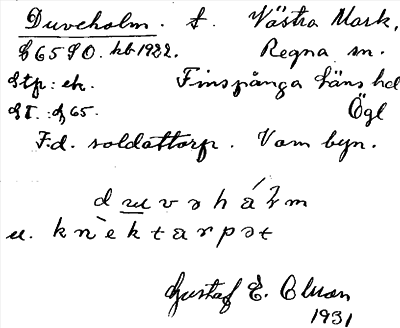 Duveholm. t. Västra Mark,
G65 J0. kb 1922. Regna sn.
Stp: ek. Finspånga läns hd
GT.: G65. Ögl
F.d. soldattorp. Vam byn.
d u v ə h å l m
u. k n e k t a r p ə t
Gustaf E. Olsson
1931